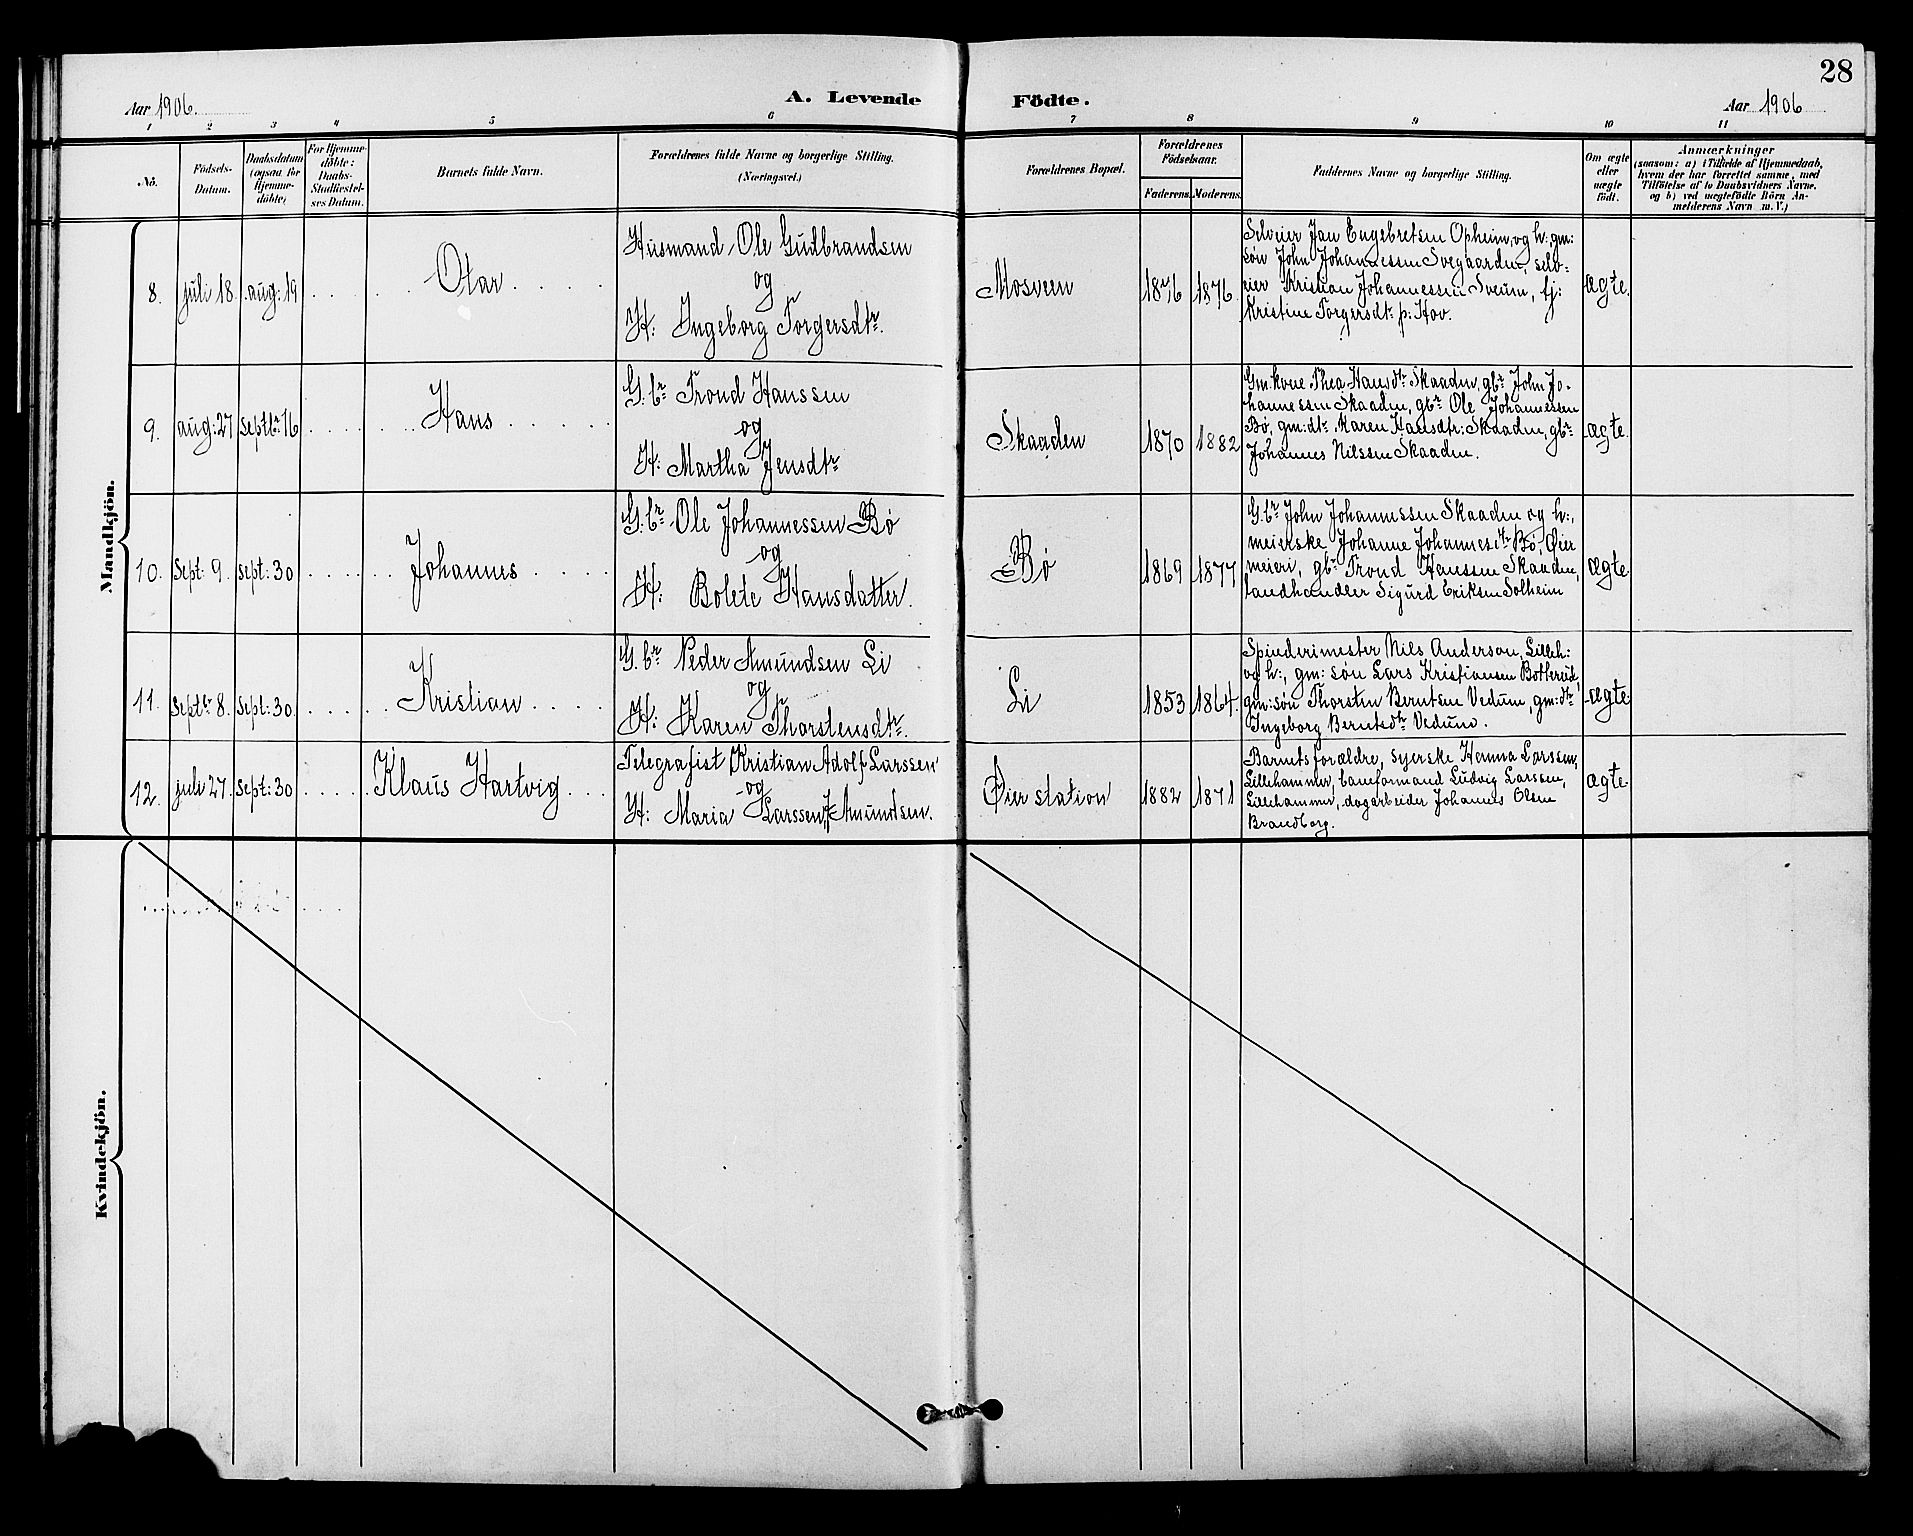 28
Aar 1906.
A. Levende
Födte.
Aar 1906
1 2 3 4 5 6 7 8 9 10 11
No.
Födsels-
Datum.
Daabsdatum
(ogsaa for
Hjemme-
döbte)
For Hjemme-
döbte:
Daabs-
Stadfæstel-
ses Datum.
Barnets fulde Navn.
Forældrenes fulde Navne og borgerlige Stilling.
(Næringsvei.)
Forældrenes Bopæl.
Forældrenes
Födselsaar.
Faderens. Moderens.
Faddernes Navne og borgerlige Stilling.
Om ægte
eller
uægte
født.
Anmærkninger
(saasom: a) i Tilfælde af Hjemmedaab,
hvem der har forrettet samme, med
Tilföielse af to Daabsvidners Navne,
og b) ved uægtefödte Börn An-
melderens Navn m. V.)
Mandkjön.
8. juli 18. aug: 19 Otar
Husmand Ole Gudbrandsen
og
H: Ingeborg Torgersdtr.
Mosveen 1876 1876.
Selveier Jan Engebretsen Opheim, og h:, gm:
søn John Johannessen Svegaarden, selv-
eier Kristian Johannessen Sveum, tj:
Kristine Torgersdtr p: Hov.
ægte.
9. aug: 27 septbr 16 Hans
G.br Trond Hanssen
og
H: Martha Jensdtr
Skaaden 1870 1882
Gm.kone Thea Hansdtr Skaaden, gbr John Jo-
hannessen Skaaden, gbr Ole Johannessen
Bø, gm:dtr. Karen Hansdtr: Skaaden, gbr
Johannes Nilssen Skaaden.
ægte.
10. Sept: 9. sept: 30 Johannes
G.br Ole Johannessen Bø
og
H: Bolete Hansdatter.
Bø 1869 1877
G.br John Johannessen Skaaden og h:,
meierske Johanne Johannesdtr Bø, Øier
meieri, gbr Trond Hanssen Skaaden,
landhandler Sigurd Eriksen Solheim
ægte
11. Septbr 8. Sept: 30. Kristian
G.br Peder Amundsen Li
og
H: Karen Thorstensdtr.
Li 1853 1864.
Spinderimester Nils Anderson, Lilleh:
og h:, gm: søn Lars Kristiansen Botterud,
gm:søn Thorsten Berntsen Vedum, gm:dtr
Ingeborg Berntsdtr Vedum.
ægte.
12. juli 27. Sept: 30 Klaus Hartvig
Telegrafist Kristian Adolf Larssen
og
H: Maria Larssen, f. Amundsen.
Øier station 1882 1871
Barnets forældre, syerske Hanna Larssen,
Lillehammer, baneformand Ludvig Larssen,
Lillehammer, dagarbeider Johannes Olsen
Brandborg.
ægte
Kvindekjön.